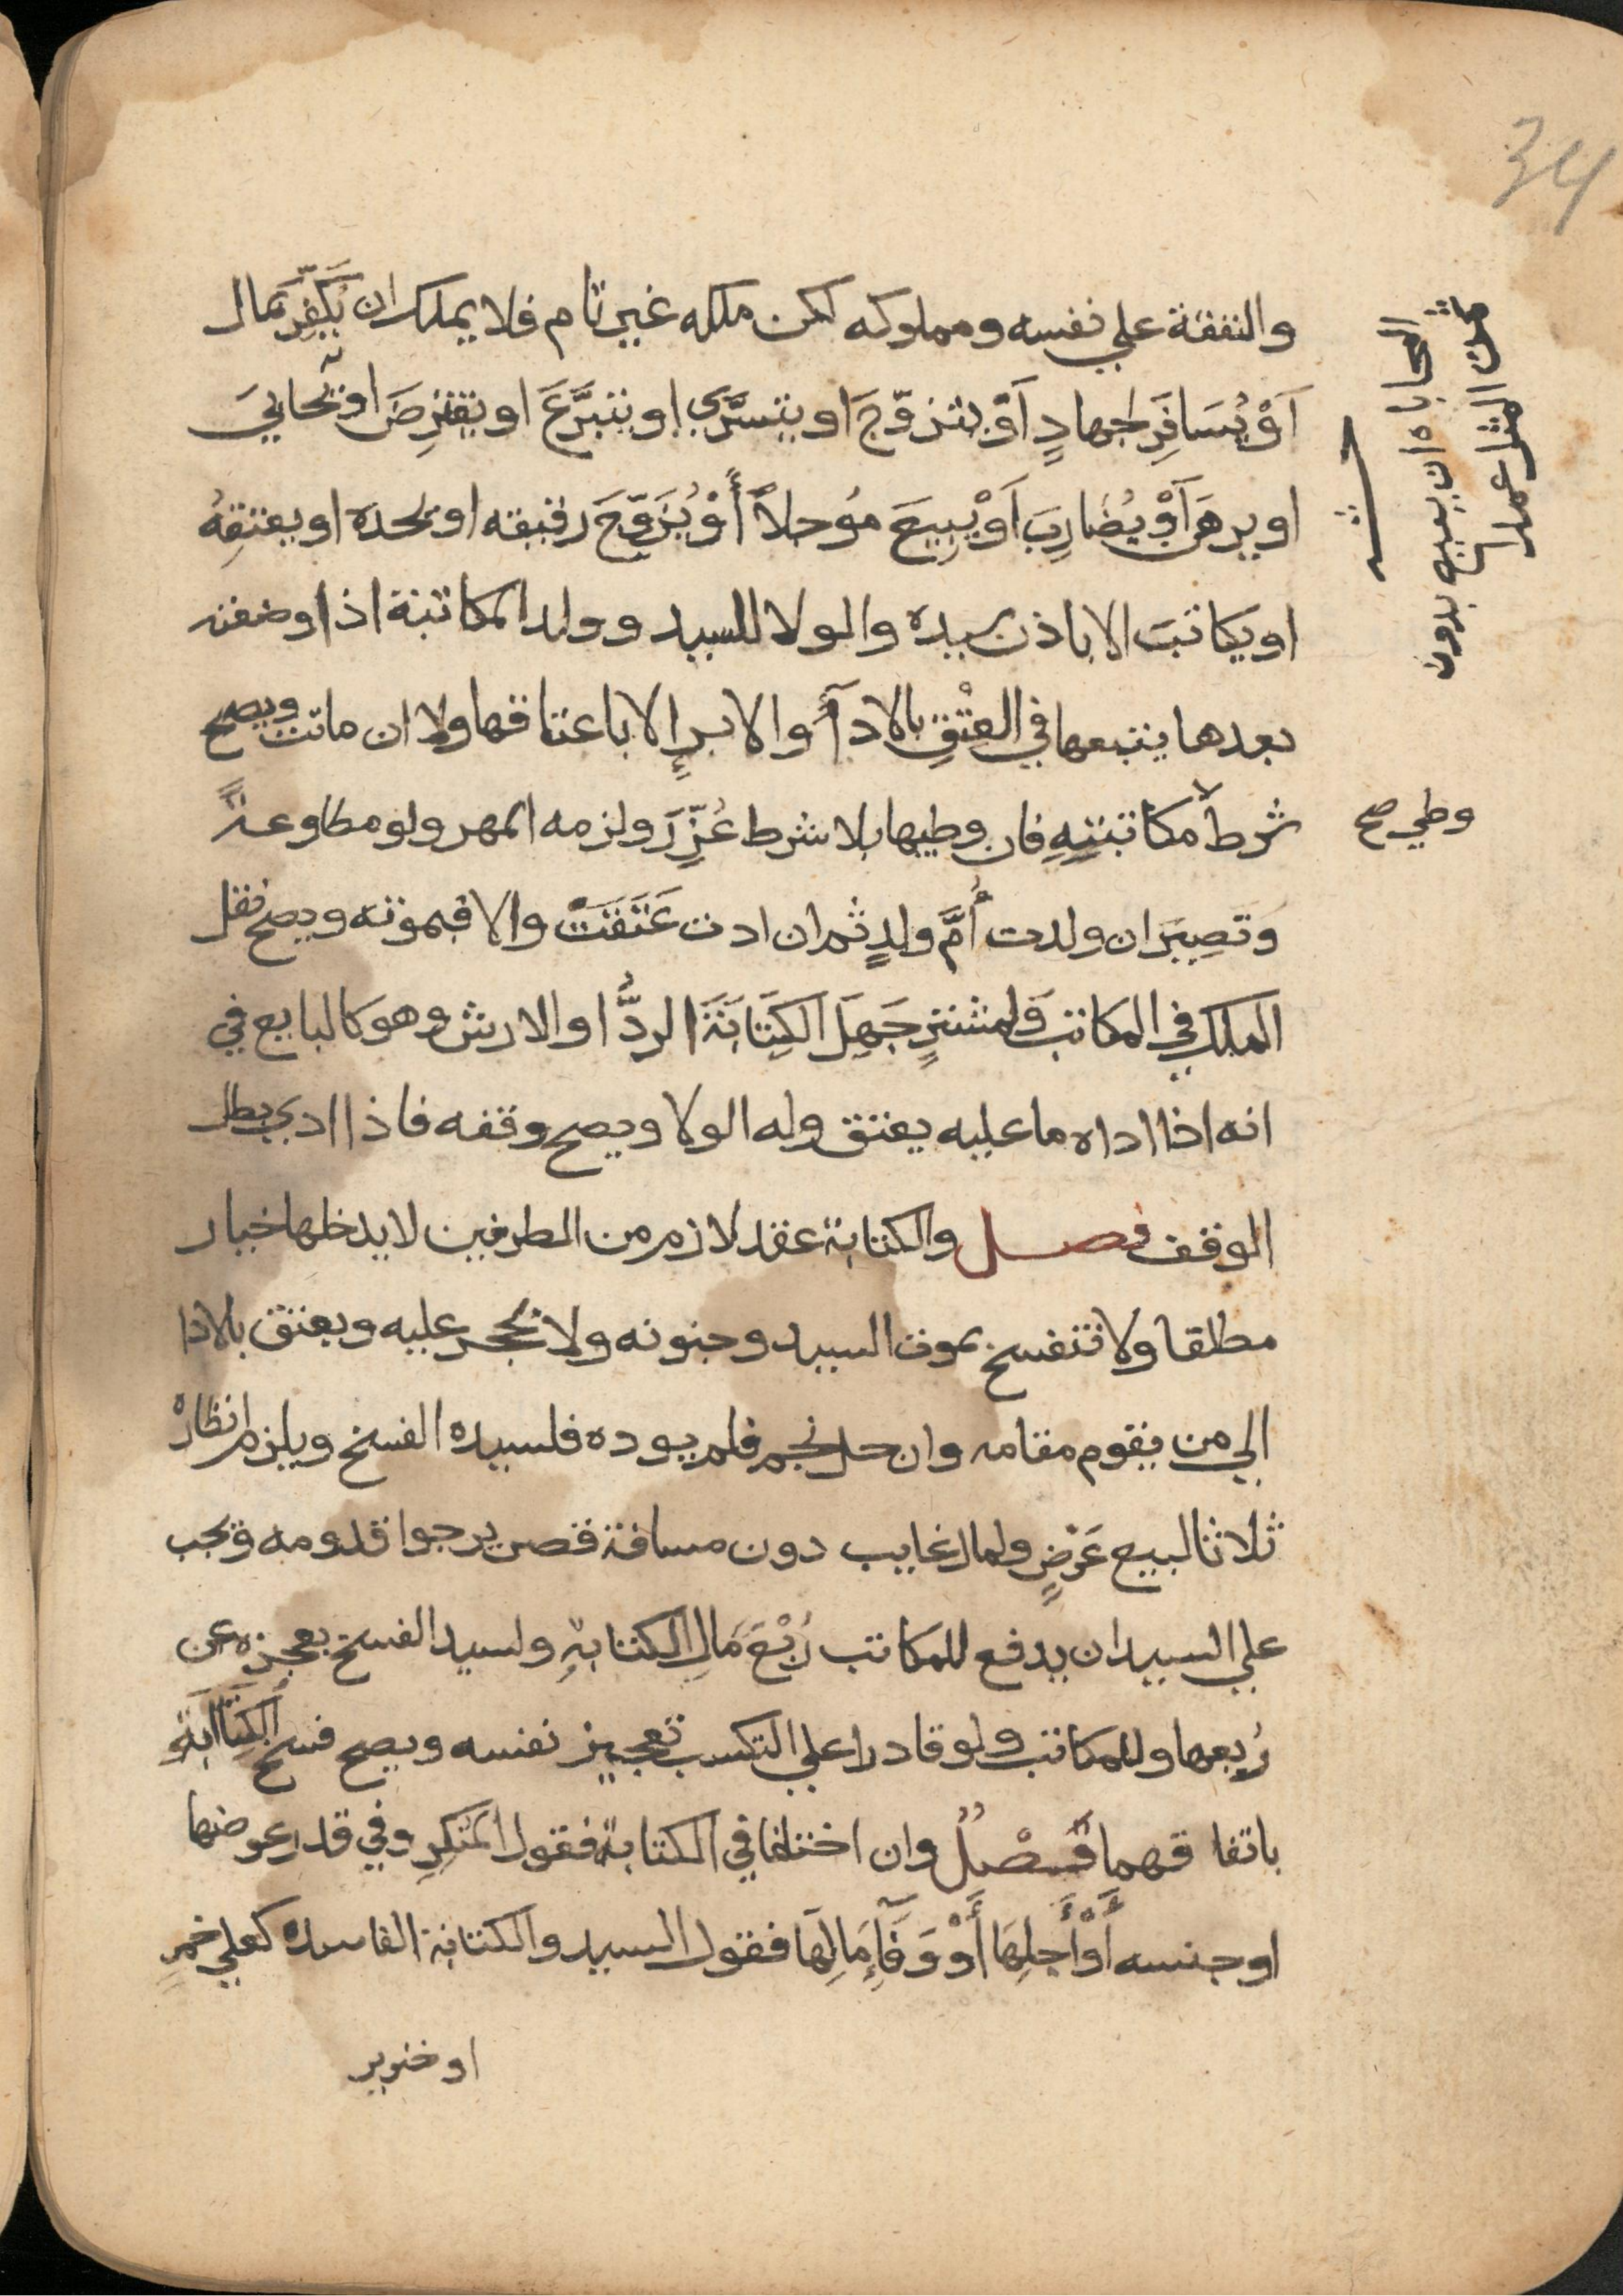 34
والنفقة علي نفسه ومملوكه لكن ملكه غير تام فلا يملك ان يُكَفِّرَ بمال
اَوْ يُسَافِرَ لجهادٍ اَوْ يتزوّجَ او يتسرَّي او يتبرَّعَ او يقترِضَ او يُحَابيَ
او يرهَنَ اَوْ يُضَارِبَ اَوْ يَبِيعَ مُوجلاً أَوْ يُزَوِّجَ رقيقه او يحده او يعتقِهُ
او يكاتبَ الا باذن سيده والولا للسيد وولد المكاتبة اذا وضعته
بعدها يتبعها في العِتْقِ بالادآءِ والابرإ لا باعتاقها ولا ان ماتت ويصح
شرط مكاتبتِهِ فان وطيها بلا شرط عُزِّرَ ولزمه المهر ولو مطاوعةً
وطي صح
وَتصِيرَ ان ولدت أُمَّ ولدٍ ثم ان ادت عَتَقَتْ والا فبموته ويصح نقل
الملك في المكاتب وَلمشترٍ جَهِلَ الكِتَابَةَ الردُّ او الارش وهو كالبايع في
انه اذا اداه ما عليه يعتق وله الولا ويصح وقفه فاذا ادي بطل
الوقف فصل والكتابة عقد لازم من الطرفين لا يدخلها خيار
مطلقا ولا تنفسخ بموت السيد وجنونه ولا بحجر عليه ويعتق بالادا
الي من يقوم مقامه وان حل نجم فلم يوده فلسيده الفسخ ويلزم انظارهُ
ثلاثا لبيع عَرْضٍ ولمال غايب دون مسافة قصر يرجوا قدومه ويجب
علي السيد ان يدفع للمكاتب رُبْعَ مَالِ الكتابةِ ولسيد الفسخ بعجزه عن
رُبعها وللمكاتب ولو قادرا علي التكسب تعجيز نفسه ويصح فسخ الكِتَابَةِ
باتفاقهما فَصْلٌ وان اختلفا في الكتابة فقول المنكِرِ وفي قدر عوضها
او جنسه أَوْ أَجلِهَا أَوْ وَفَآءِ مَالِهَا فقول السيد والكتابة الفاسده كعلي خمرٍ
او خنزير
المحاباه ان يبيع بدون
ثمن المثل عمدا